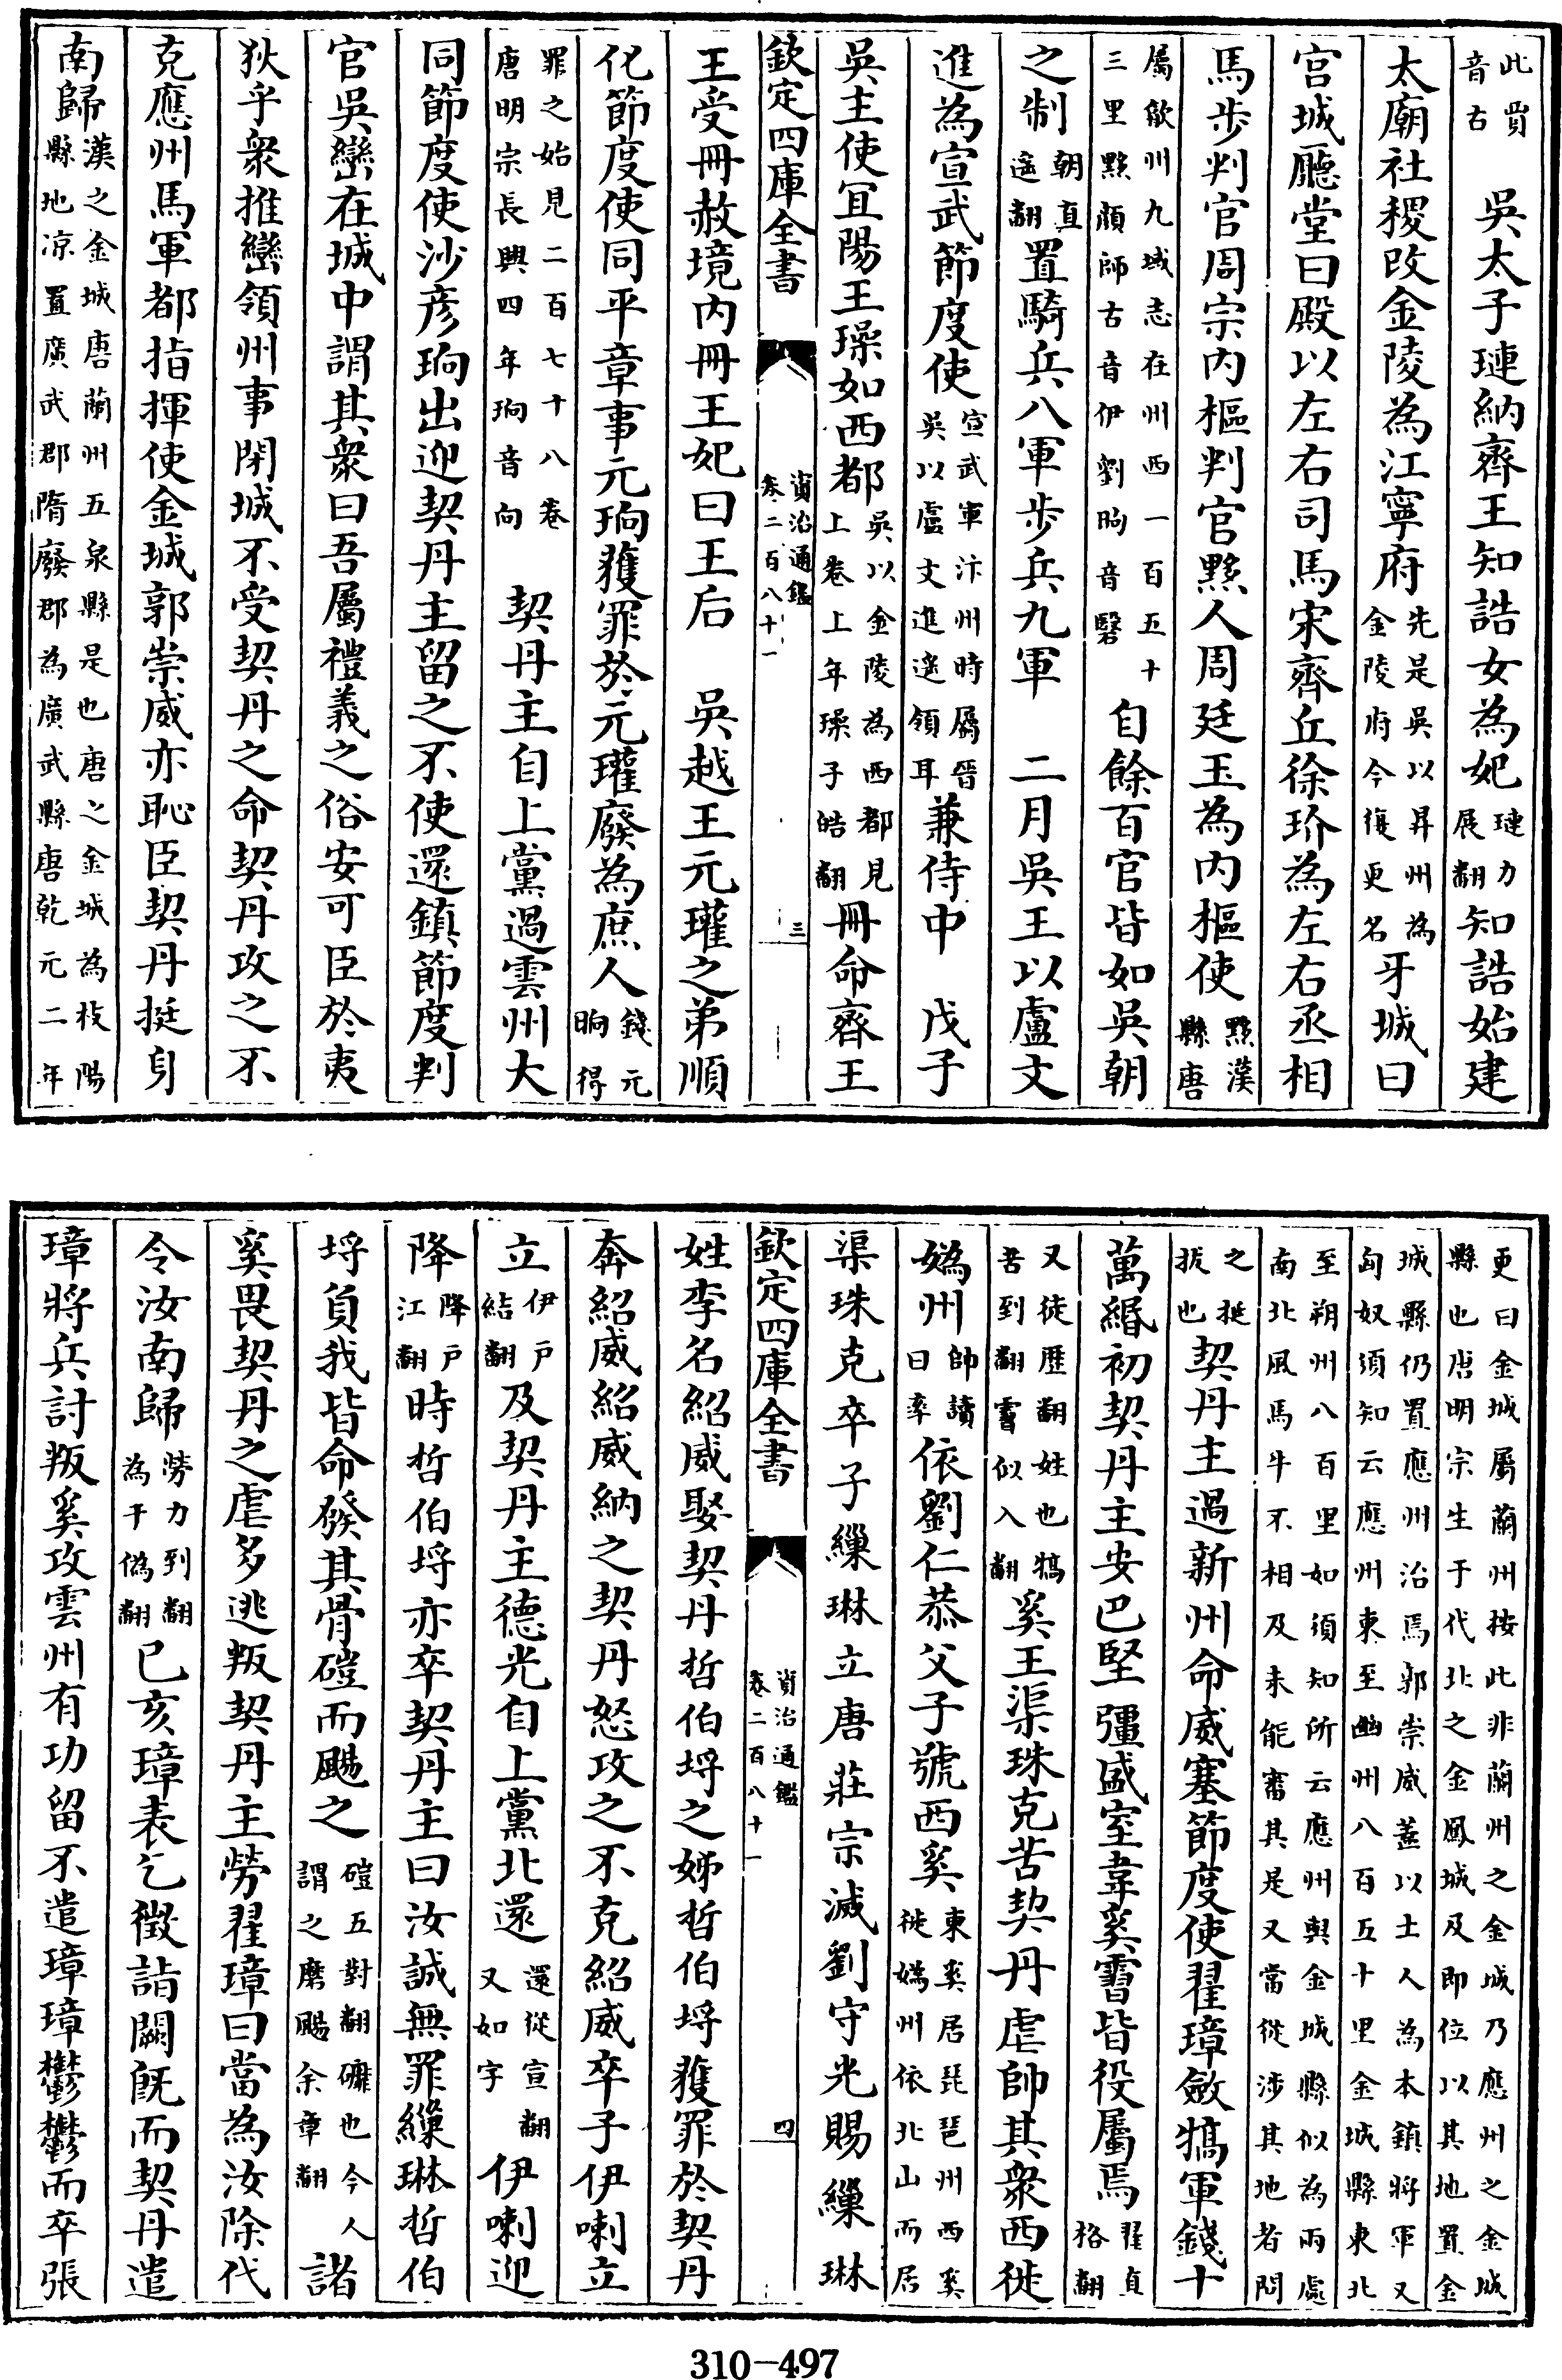 此賈音古　吳太子璉納齊王知誥女為妃璉力展翻知誥始建
太廟社稷改金陵為江寧府先是吳以昇州為金陵府今復更名牙城曰
宫城廳堂曰殿以左右司馬宋齊丘徐玠為左右丞相
馬步判官周宗内樞判官黟人周廷玉為内樞使黟漢縣唐
屬歙州九域志在州西一百五十三里黟顔師古音伊劉昫音瑿　自餘百官皆如吳朝
之制朝直遥翻置騎兵八軍步兵九軍　二月吳王以盧文
進為宣武節度使宣武軍汴州時屬晉吳以盧文進遥領耳兼侍中　戊子
吳主使冝陽王璪如西都吳以金陵為西都見上卷上年璪子皓翻冊命齊王
欽定四庫全書　資治通鑑卷二百八十一　三
王受冊赦境内冊王妃曰王后　吳越王元瓘之弟順
化節度使同平章事元珦獲罪於元瓘廢為庶人錢元珦得
罪之始見二百七十八卷唐明宗長興四年珦音向　契丹主自上黨過雲州大
同節度使沙彦珣出迎契丹主留之不使還鎮節度判
官吳巒在城中謂其衆曰吾屬禮義之俗安可臣於夷
狄乎衆推巒領州事閉城不受契丹之命契丹攻之不
克應州馬軍都指揮使金城郭崇威亦恥臣契丹挺身
南歸漢之金城唐蘭州五泉縣是也唐之金城為枝陽縣地凉置廣武郡隋廢郡為廣武縣唐乾元二年
更曰金城屬蘭州按此非蘭州之金城乃應州之金城縣也唐明宗生于代北之金鳳城及即位以其地置金
城縣仍置應州治焉郭崇威蓋以土人為本鎮將軍又匈奴須知云應州東至幽州八百五十里金城縣東北
至朔州八百里如須知所云應州與金城縣似為兩處南北風馬牛不相及未能審其是又當從涉其地者問
之挺拔也契丹主過新州命威塞節度使翟璋斂犒軍錢十
萬緡初契丹主安巴堅彊盛室韋奚霫皆役屬焉翟直格翻
又徒歷翻姓也犒苦到翻霫似入翻奚王渠珠克苦契丹虐帥其衆西徙
媯州帥讀曰率依劉仁恭父子號西奚東奚居琵琶州西奚徙媯州依北山而居
渠珠克卒子繅琳立唐莊宗滅劉守光賜繅琳
欽定四庫全書　資治通鑑卷二百八十一　四
姓李名紹威紹威娶契丹哲伯埒之姊哲伯埒獲罪於契丹
奔紹威紹威納之契丹怒攻之不克紹威卒子伊喇立
立伊戸結翻及契丹主德光自上黨北還還從宣翻又如字伊喇迎
降降戸江翻時哲伯埒亦卒契丹主曰汝誠無罪繅琳哲伯
埒負我皆命發其骨磑而颺之磑五對翻䃺也今人謂之磨颺余章翻諸
奚畏契丹之虐多逃叛契丹主勞翟璋曰當為汝除代
令汝南歸勞力到翻為于偽翻己亥璋表乞徵詣闕既而契丹遣
璋將兵討叛奚攻雲州有功留不遣璋璋鬱鬱而卒張
310-497